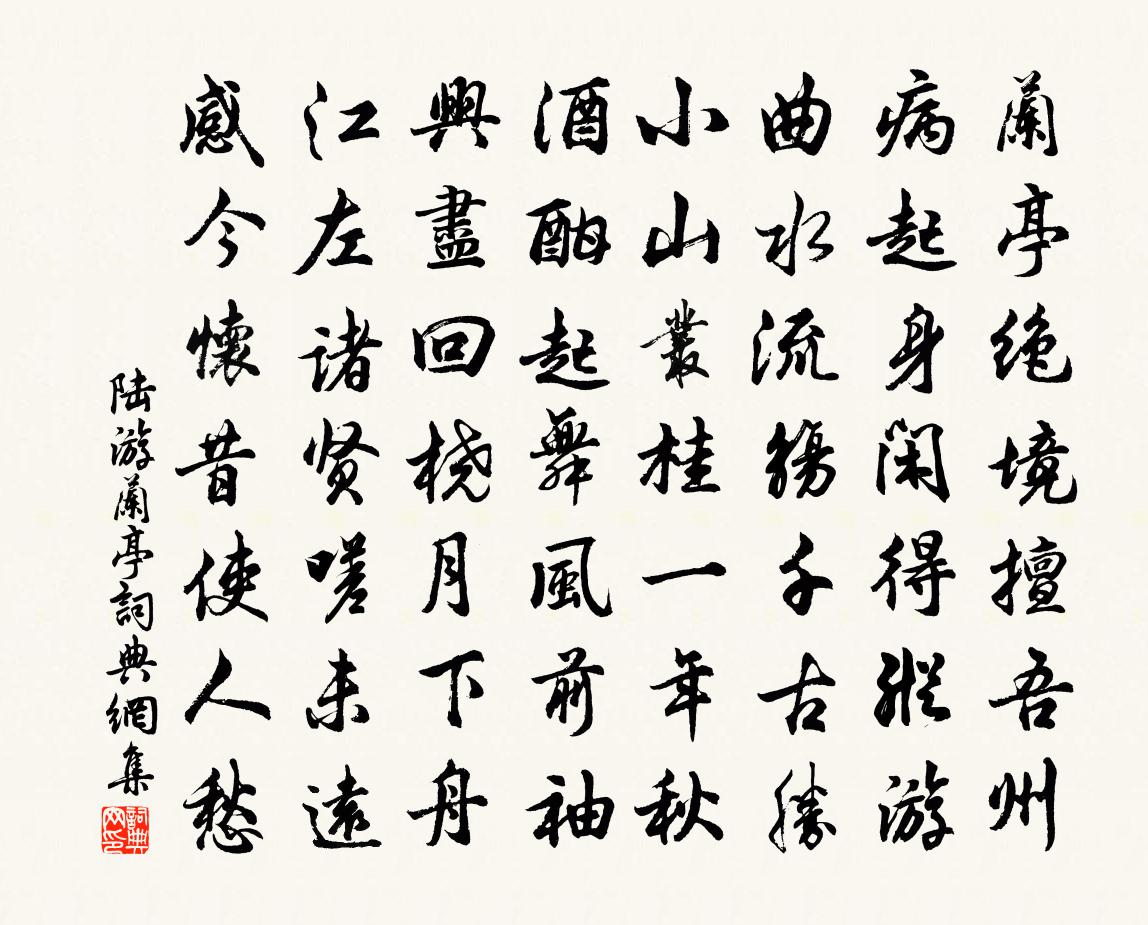 蘭亭绝境擅吾州
病起身閑得縱游
曲水流觴千古勝
小山叢桂一年秋
酒酣起舞風前袖
興盡回橈月下舟
江左諸贤嗟未遠
感今懷昔使人愁
陆游蘭亭詞典網集
詞典网印